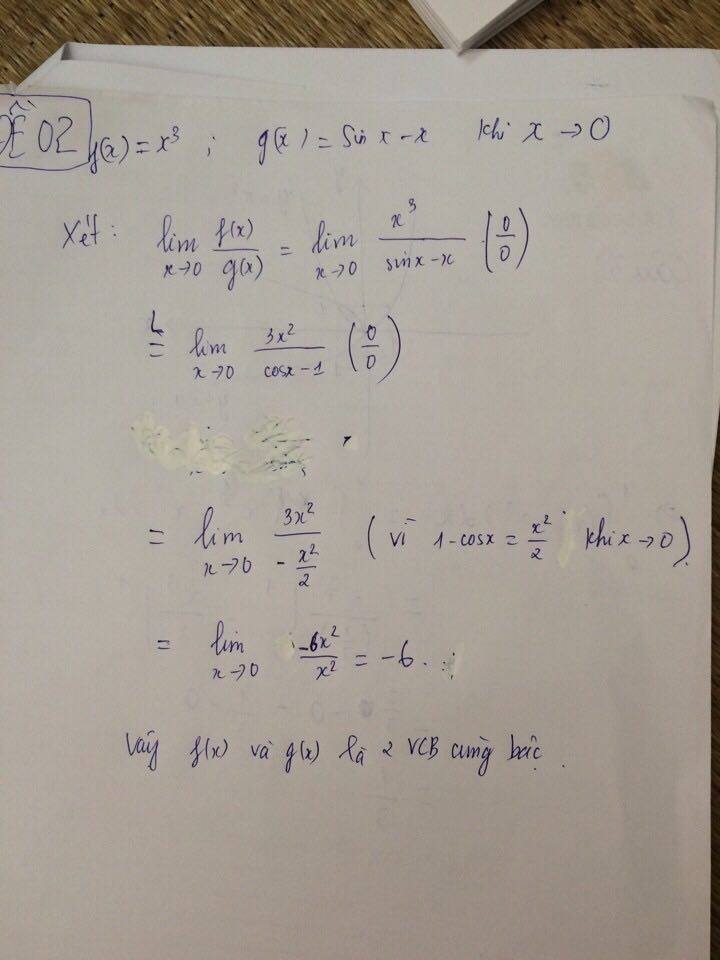 ĐỀ 02 f(x) = x³ ; g(x) = sin x - x khi x → 0
Xét: lim x→0 f(x)/g(x) = lim x→0 x³/(sinx - x) (0/0)
L= lim x→0 3x²/(cosx - 1) (0/0)
= lim x→0 3x²/(-x²/2) (vì 1-cosx = x²/2 khi x → 0).
= lim x→0 -6x²/x² = -6.
Vậy f(x) và g(x) là 2 VCB cùng bậc.